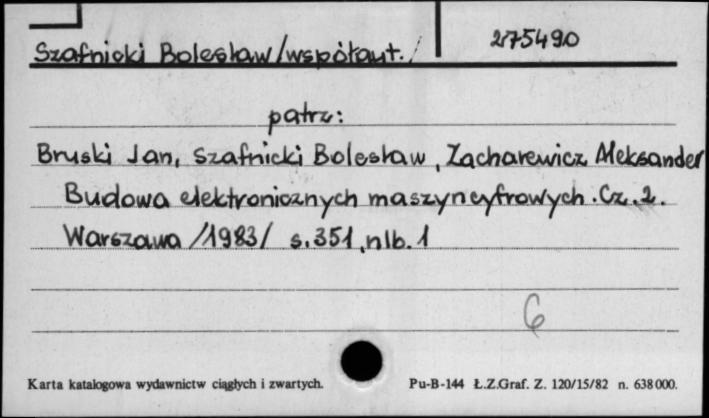 Szafnicki Bolesław /współaut./ 275490
patrz:
Bruski Jan, Szafnicki Bolesław, Zacharewicz Aleksander
Budowa elektronicznych maszyn cyfrowych. Cz. 2.
Warszawa /1983/ s. 351, nlb. 1
6
Karta katalogowa wydawnictw ciągłych i zwartych. Pu-B-144 Ł.Z.Graf. Z. 120/15/82 n. 638 000.